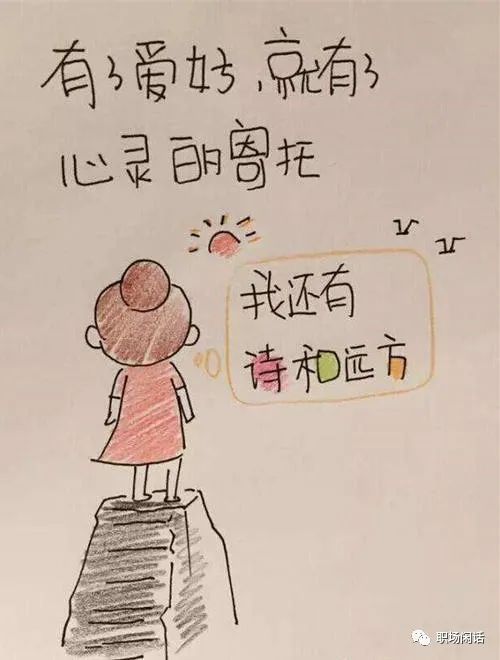 有了爱好、就有了
心灵的寄托
我还有
诗和远方
职场闲话